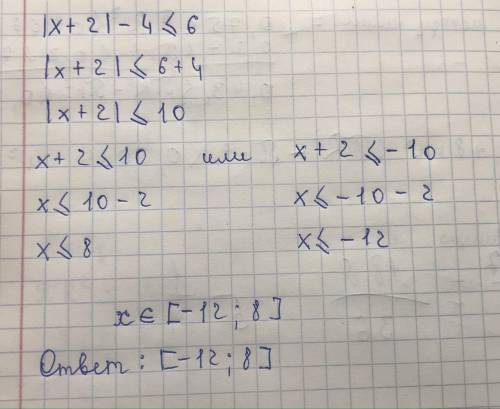 |x + 2| - 4 ⩽ 6
|x + 2| ⩽ 6 + 4
|x + 2| ⩽ 10
x + 2 ⩽ 10 или x + 2 ⩽ - 10
x ⩽ 10 - 2 x ⩽ - 10 - 2
x ⩽ 8 x ⩽ - 12
x ∈ [-12 ; 8]
Ответ : [-12 ; 8]